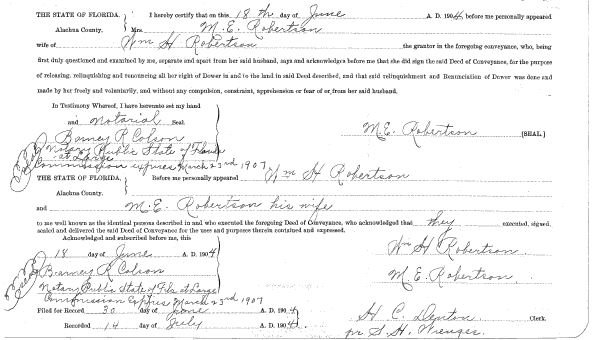 THE STATE OF FLORIDA. I hereby certify that on this 18th day of June A. D. 1904, before me personally appeared
Alachua County. Mrs. M. E. Robertson
wife of Wm H Robertson the grantor in the foregoing conveyance, who, being
first duly questioned and examined by me, separate and apart from her said husband, says and acknowledges before me that she did sign the said Deed of Conveyance, for the purpose
of releasing, relinquishing and renouncing all her right of Dower in and to the land in said Deed described, and that said relinquishment and Renunciation of Dower was done and
made by her freely and voluntarily, and without any compulsion, constraint, apprehension or fear of or from her said husband.
In Testimony Whereof, I have hereunto set my hand
and Notarial Seal.
Barney R Colson M. E. Robertson [SEAL.]
Notary Public State of Florida
at Large
Commission expires March 23rd 1907
THE STATE OF FLORIDA, Before me personally appeared Wm H Robertson
Alachua County.
and M. E. Robertson his wife
to me well known as the identical persons described in and who executed the foregoing Deed of Conveyance, who acknowledged that they executed, signed,
sealed and delivered the said Deed of Conveyance for the uses and purposes therein contained and expressed.
Acknowledged and subscribed before me, this
18 day of June A. D. 1904 Wm H Robertson
Barney R Colson M. E. Robertson.
Notary Public State of Fla at Large
Commission Expires March 23rd 1907
Filed for Record 30 day of June A. D. 1904 H. C. Denton Clerk.
Recorded 14 day of July A. D. 1904 pr S. H. Wienges.